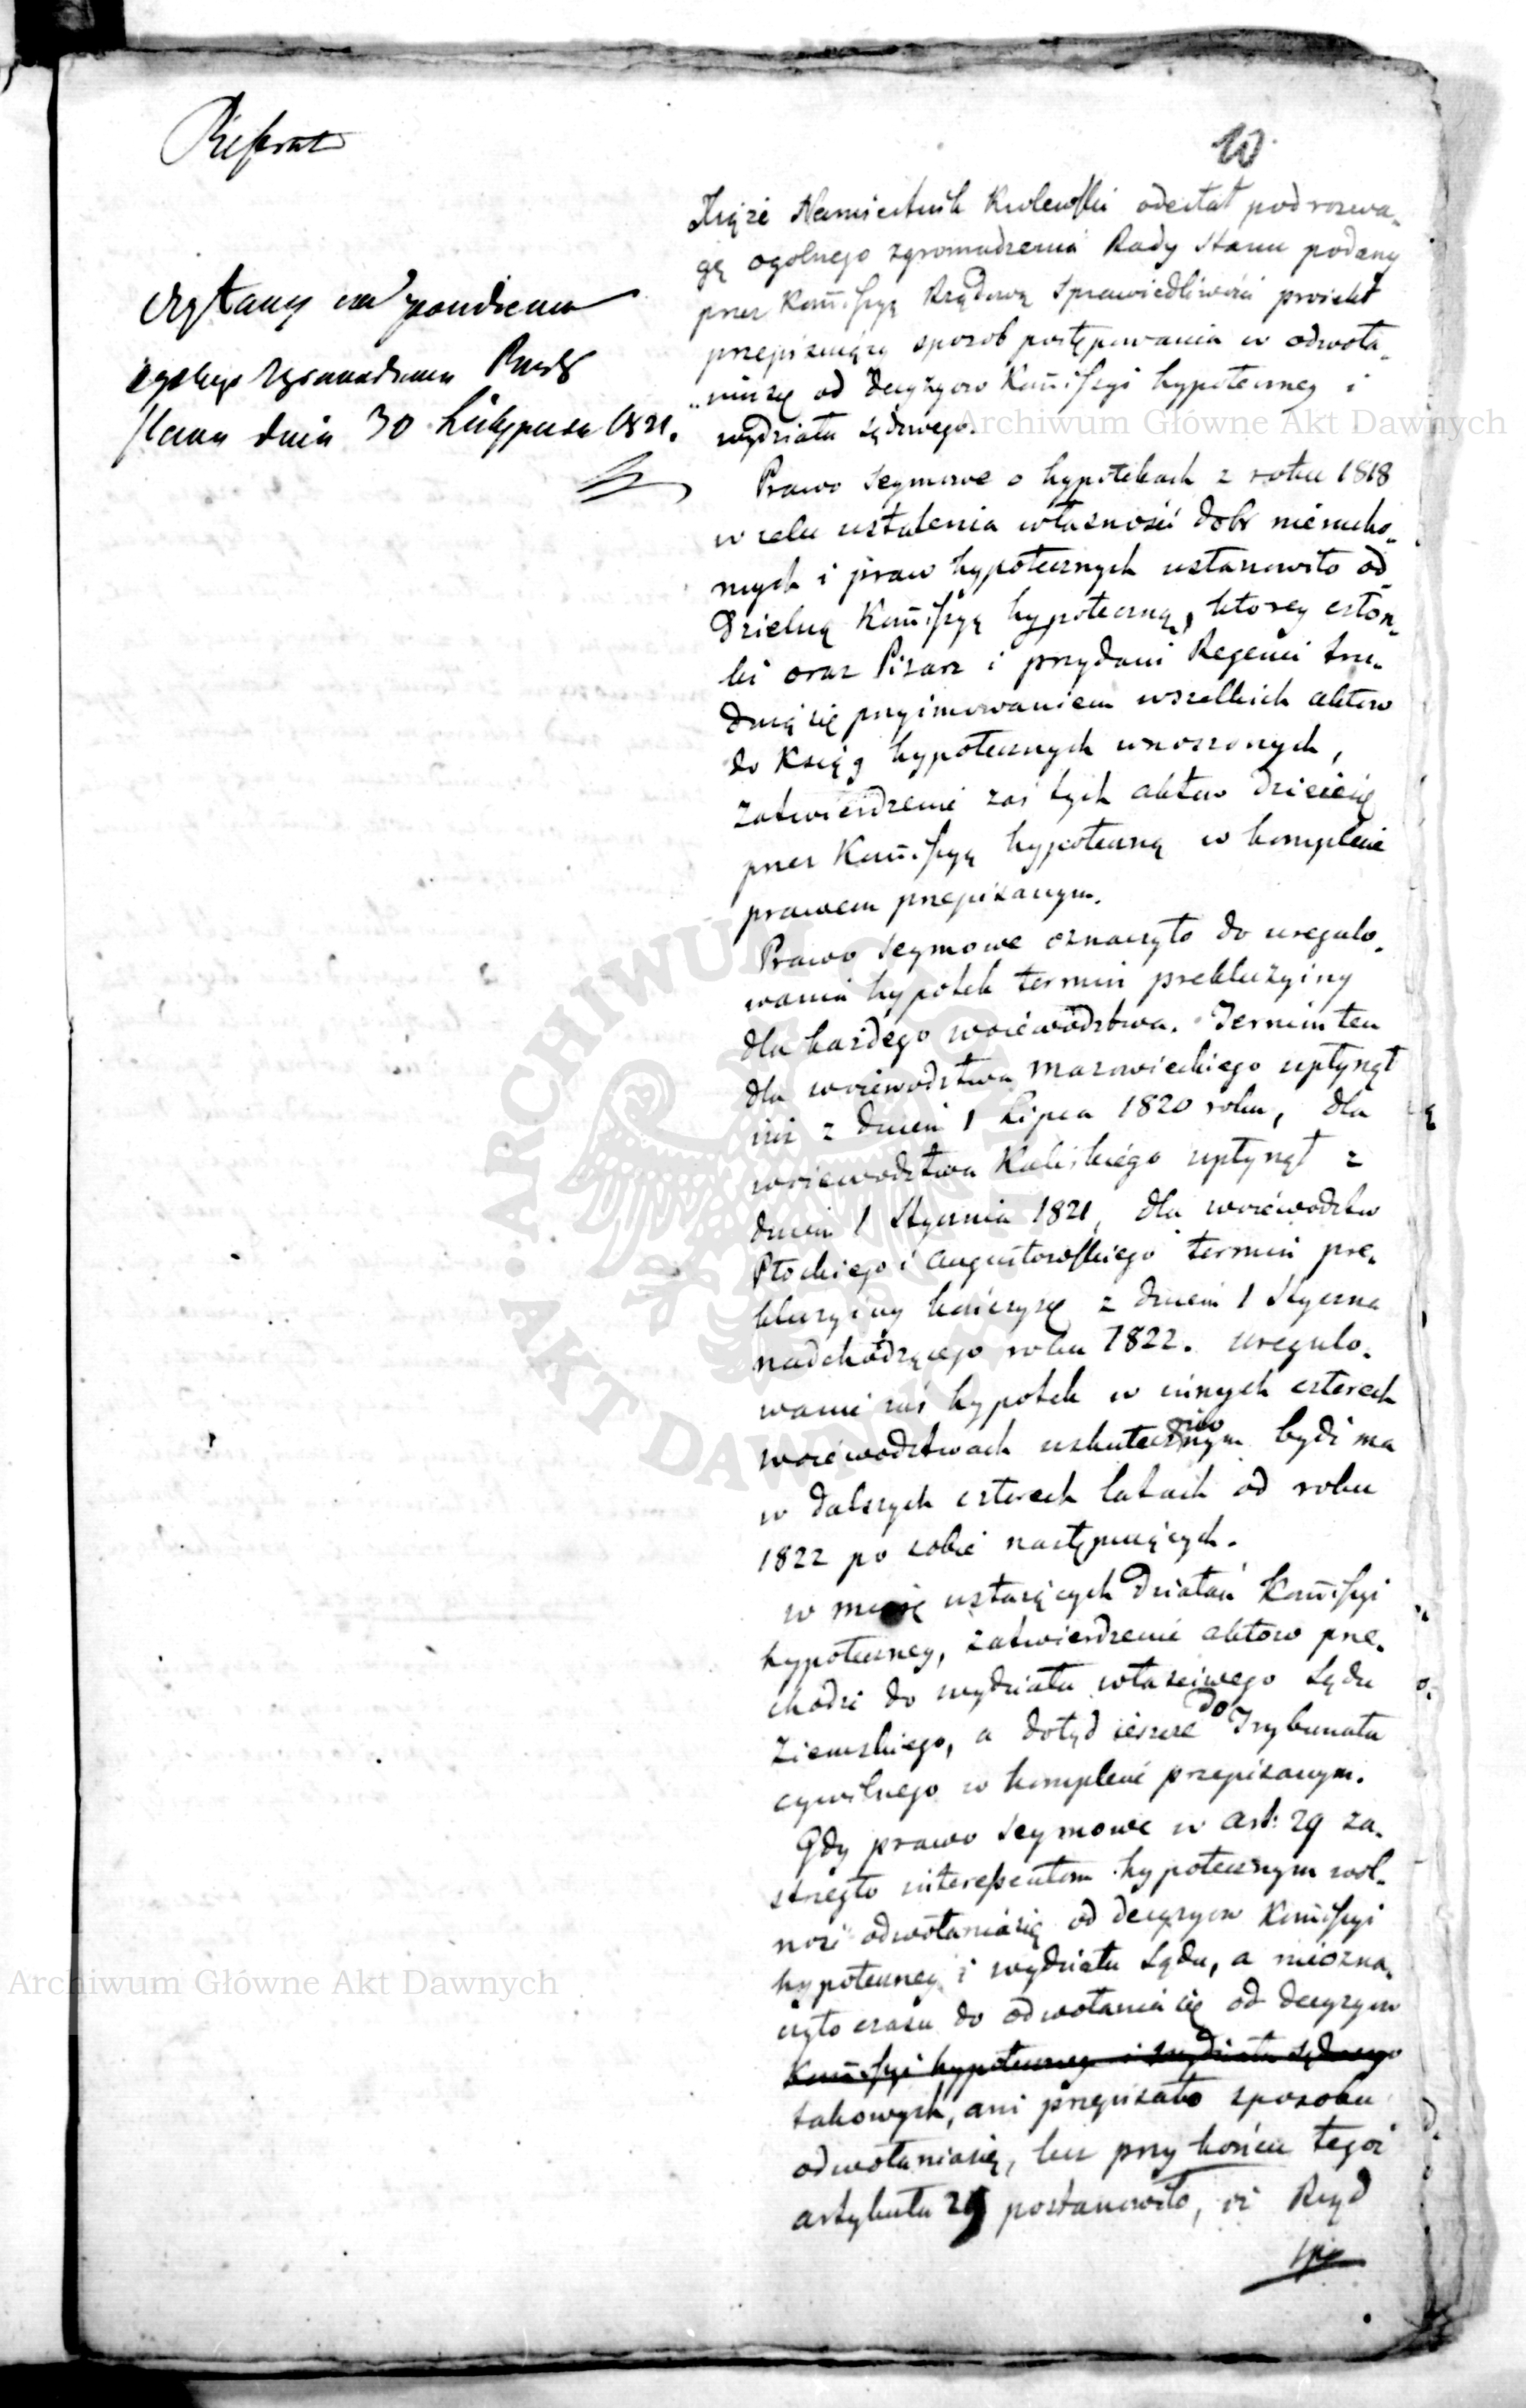 Referat
10
czytany na posiedzeniu
ogolnego zgromadzenia Rady
Stanu dnia 30 Listopada 1821.
Xiąże Namiestnik Krolewski odesłał pod rozwa-
gę ogolnego zgromadzenia Rady Stanu podany
przez Kommissyą Rządową Sprawiedliwości proiekt
przepisuiący sposob postępowania w odwoła-
niu się od decyzyow Kommissyi hypoteczney i
wydziału sądowego.
Prawo Seymowe o hypotekach z roku 1818
w celu ustalenia własności dobr nierucho-
mych i praw hypotecznych ustanowiło od-
dzielną Kommissyą hypoteczną, ktorey człon-
ki oraz Pisarz i przydani Regenci tru-
dnią się przyimowaniem wszelkich aktow
do Ksiąg hypotecznych wnoszonych,
zatwierdzenie zaś tych aktow dzieie się
przez Kommissyą hypoteczną w komplecie
prawem przepisanym.
Prawo Seymowe oznaczyło do uregulo-
wania hypotek termin prekluzyiny
dla każdego woiewodztwa. Termin ten
dla woiewodztwa mazowieckiego upłynął
iuż z dniem 1 Lipca 1820 roku, dla
woiewodztwa Kaliskiego upłynął z
dniem 1 Stycznia 1821, dla woiewodztw
Płockiego i augustowskiego termin pre-
kluzyiny kończy się z dniem 1 Stycznia
nadchodzącego roku 1822. uregulo-
wanie zaś hypotek w innych czterech
woiewodztwach uskutecznionym bydź ma
w dalszych czterech latach od roku
1822 po sobie następuiących.
w miarę ustaiących działań Kommissyi
hypoteczney, zatwierdzenie aktow prze-
chodzi do wydziału właściwego Sądu
Ziemskiego, a dotąd ieszcze do Trybunału
cywilnego w komplecie przepisanym.
Gdy prawo Seymowe w art: 29 za-
strzegło interessentom hypotecznym wol-
ność odwołania się od decyzyow Kommissyi
hypoteczney i wydziału Sądu, a nieozna-
czyło czasu do odwołania się od decyzyow
Kommissyi hypoteczney i wydziału sądowego
takowych, ani przepisało sposobu
odwołania się, lecz przy końcu tegoż
artykułu 29 postanowiło, iż Rząd
Archiwum Główne Akt Dawnych
Archiwum Główne Akt Dawnych
ARCHIWUM GŁÓWNE AKT DAWNYCH